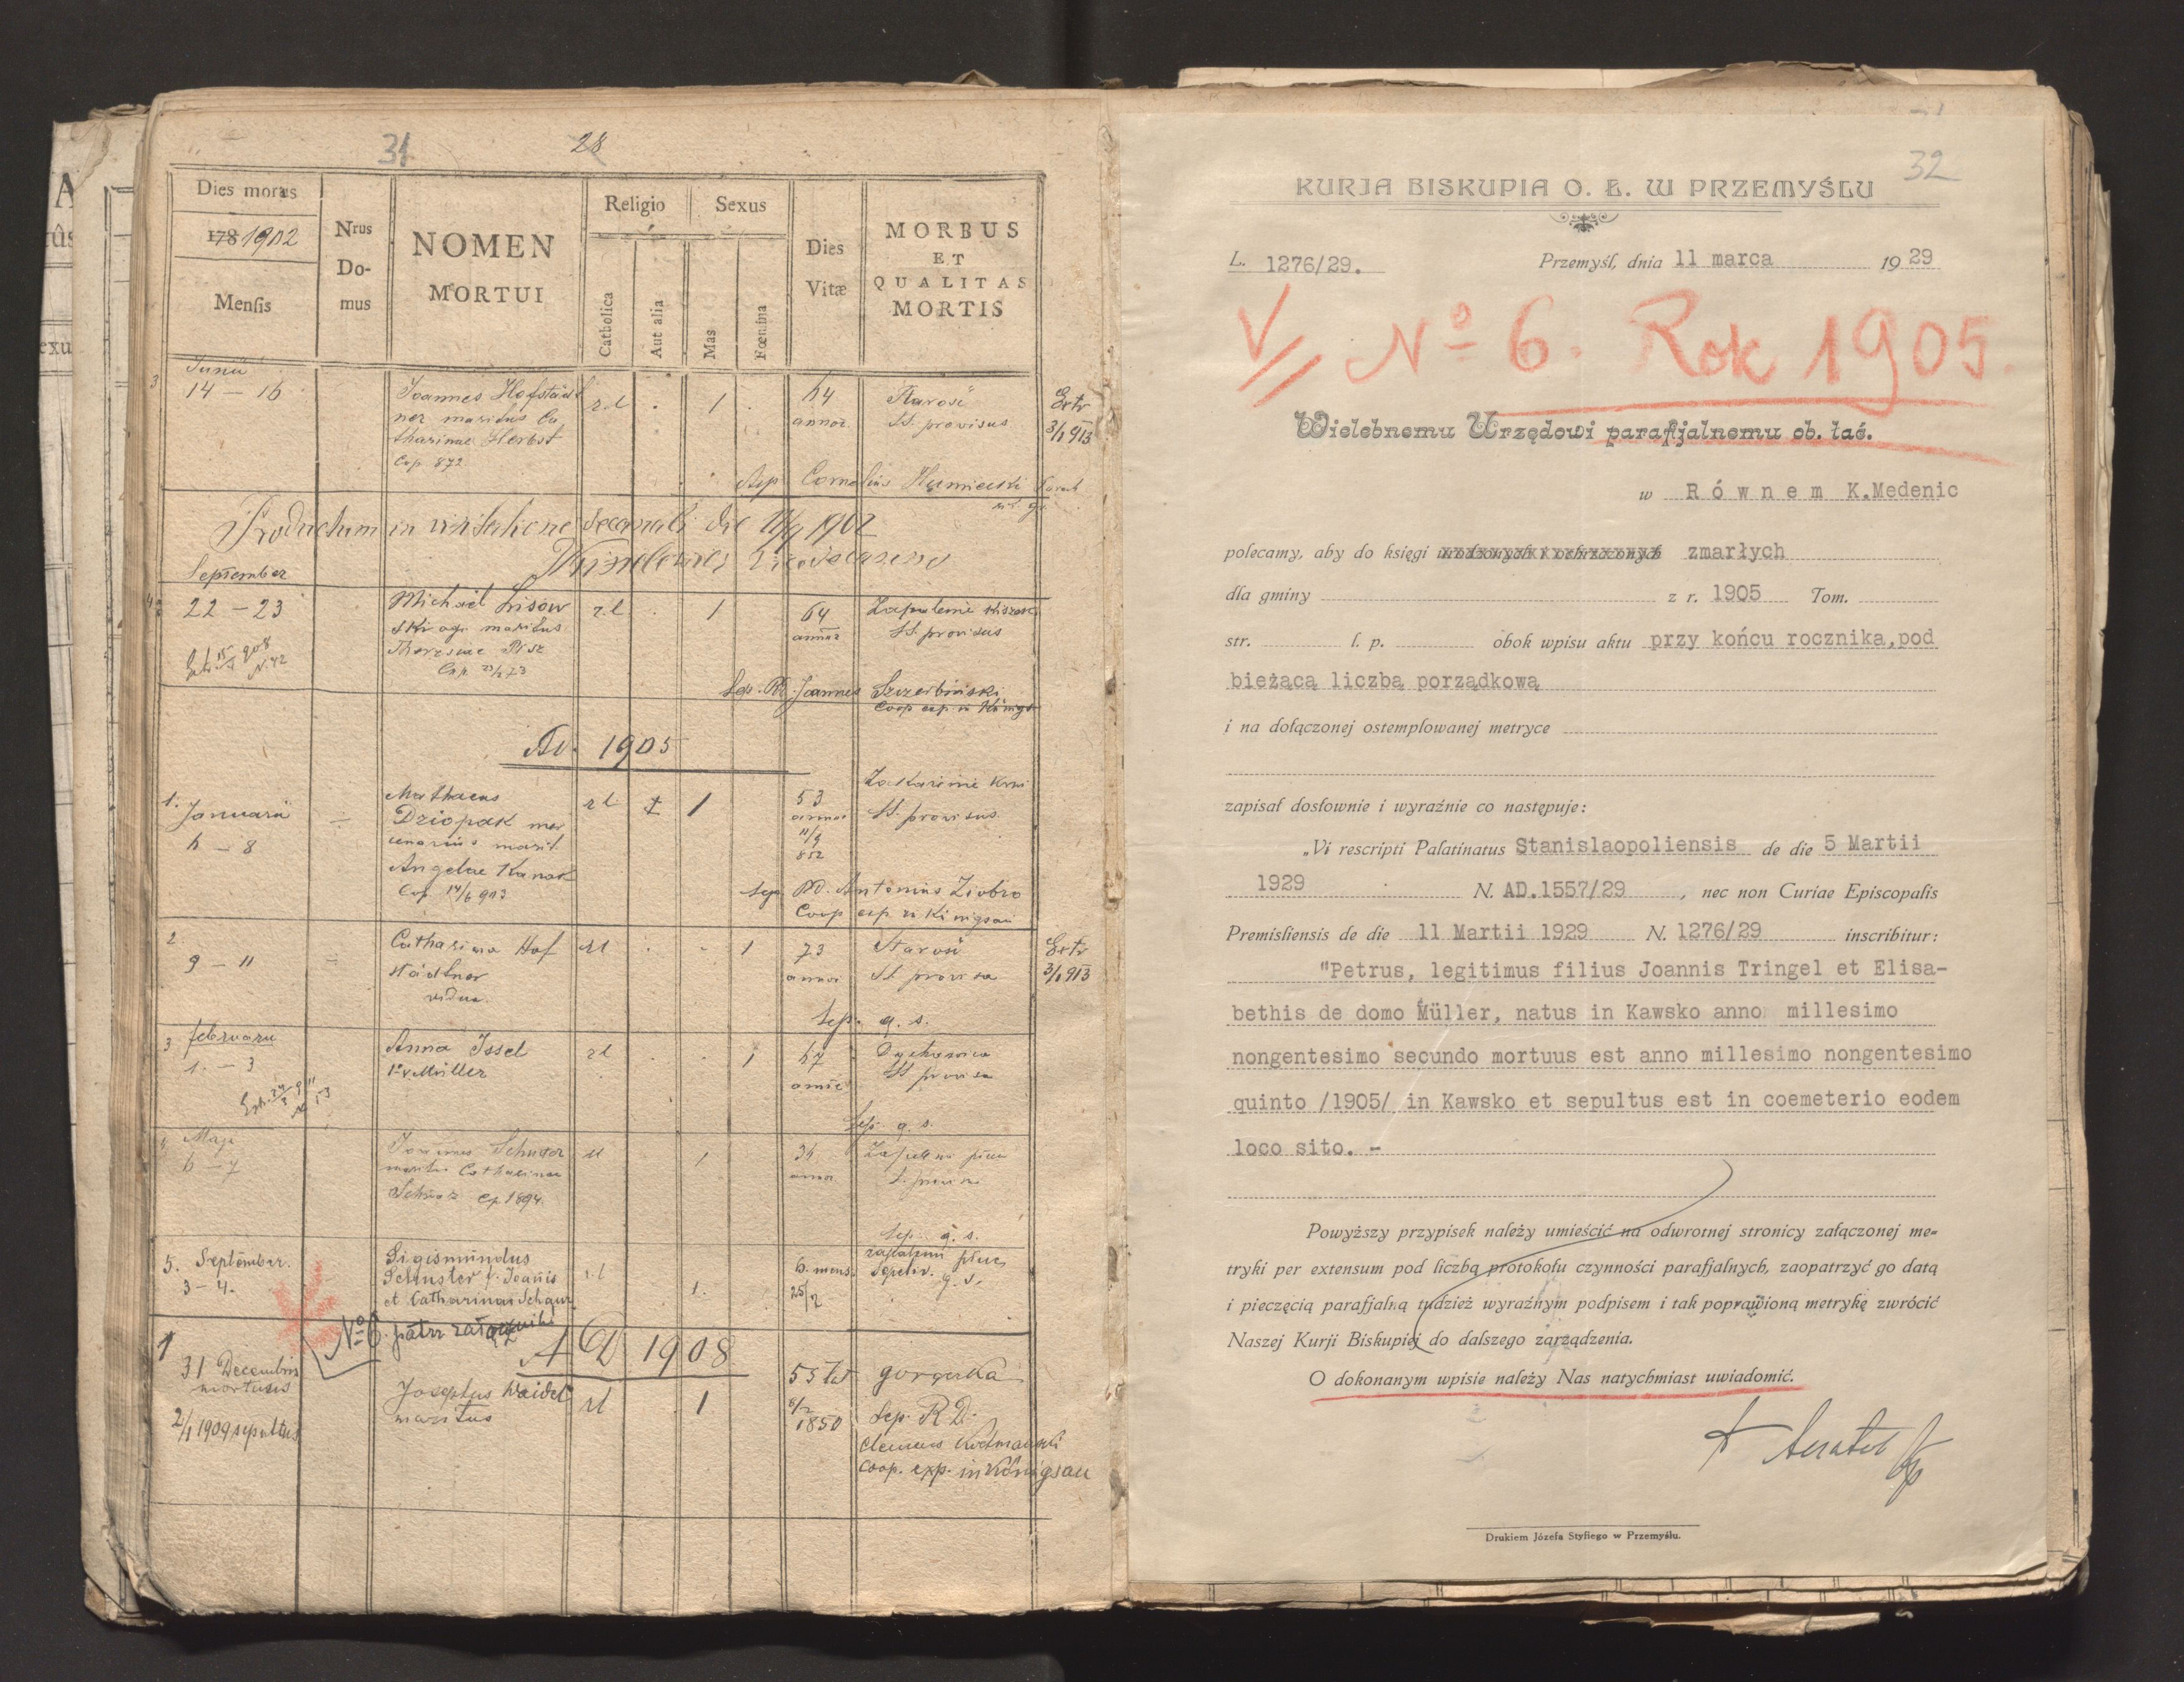 31
28
Dies mortis
178 1902
Mensis
Nrus
Do-
mus
NOMEN
MORTUI
Religio
Catholica
Aut alia
Sexus
Mas
Fœmina
Dies
Vitæ
MORBUS
ET
QUALITAS
MORTIS
3
Junii
14 – 16
Joannes Hofstädt
ner maritus Ca
tharinae Herbst
Cop. 872
r.l
1
64
annor.
Starość
SS. provisus
Extr
3/1 913
Sep. Cornelius
Productum in visitatione decanali die 11/9 1902
September
22 – 23
Michael Lisow
ski agr. maritus
Theresiae
Cop. 23/2 73
r.l
1
64
annor
Zapalenie kiszek
SS. provisus
Extr. 15 908
N. 42
Sep. RD. Joannes Szczerbiński
Coop exp. in Königs
Ad. 1905
1.
Januarii
6 – 8
Mathaeus
Dziopak mer
cenarius marit.
Angelae Kanak
Cop. 14/6 903
rl
1
53
annor
11/9
852
Zakażenie krwi
SS. provisus
Sep RD. Antonius Ziobro
Coop exp in Königsau
2.
9 – 11
Catharina Hof
städtner
vidua.
rl
1
73
annor
Starość
SS. provisa
Extr
3/1 913
Sep. q. s.
3
februarii
1. – 3
Anna Issel
1° v Müller
rl
1
67
annor
Dychawica
SS provisa
Sep. q. s.
4
Maji
6 – 7
Joannes Schuster
marit. Catharinae
Cop. 1894.
rl
1
36
annor
Zapalenie płuc
Sep. q. s.
5. Septembr.
3 – 4.
Sigismundus
Schuster f. Joanis
et Catharinae Schaur
r.l
1.
6. mens.
25/2
zapaleni płuc
Sepeliv.
q. s.
N° 6. patrz załącznik
A D 1908
1
31 Decembris
mortuus
2/1 1909 sepultus
Josephus Haidel
maritus
rl
1
55
8/2
1850
gorączka
Sep. R D.
Clemens
coop. exp. in Königsau
32
KURJA BISKUPIA O. Ł. W PRZEMYŚLU
L. 1276/29.
Przemyśl, dnia 11 marca 19 29
V N° 6. Rok 1905.
Wielebnemu Urzędowi parafjalnemu ob. łać.
w Równem K.Medenic
polecamy, aby do księgi urodzonych i ochrzczonych zmarłych
dla gminy z r. 1905 Tom.
str. l. p. obok wpisu aktu przy końcu rocznika,pod
bieżącą liczbą porządkową
i na dołączonej ostemplowanej metryce
zapisał dosłownie i wyraźnie co następuje:
„Vi rescripti Palatinatus Stanislaopoliensis de die 5 Martii
1929 N. AD.1557/29 , nec non Curiae Episcopalis
Premisliensis de die 11 Martii 1929 N. 1276/29 inscribitur:
"Petrus, legitimus filius Joannis Tringel et Elisa-
bethis de domo Müller, natus in Kawsko anno millesimo
nongentesimo secundo mortuus est anno millesimo nongentesimo
quinto /1905/ in Kawsko et sepultus est in coemeterio eodem
loco sito. –
Powyższy przypisek należy umieścić na odwrotnej stronicy załączonej me-
tryki per extensum pod liczbą protokołu czynności parafjalnych, zaopatrzyć go datą
i pieczęcią parafjalną tudzież wyraźnym podpisem i tak poprawioną metrykę zwrócić
Naszej Kurji Biskupiej do dalszego zarządzenia.
O dokonanym wpisie należy Nas natychmiast uwiadomić.
Drukiem Józefa Styfiego w Przemyślu.